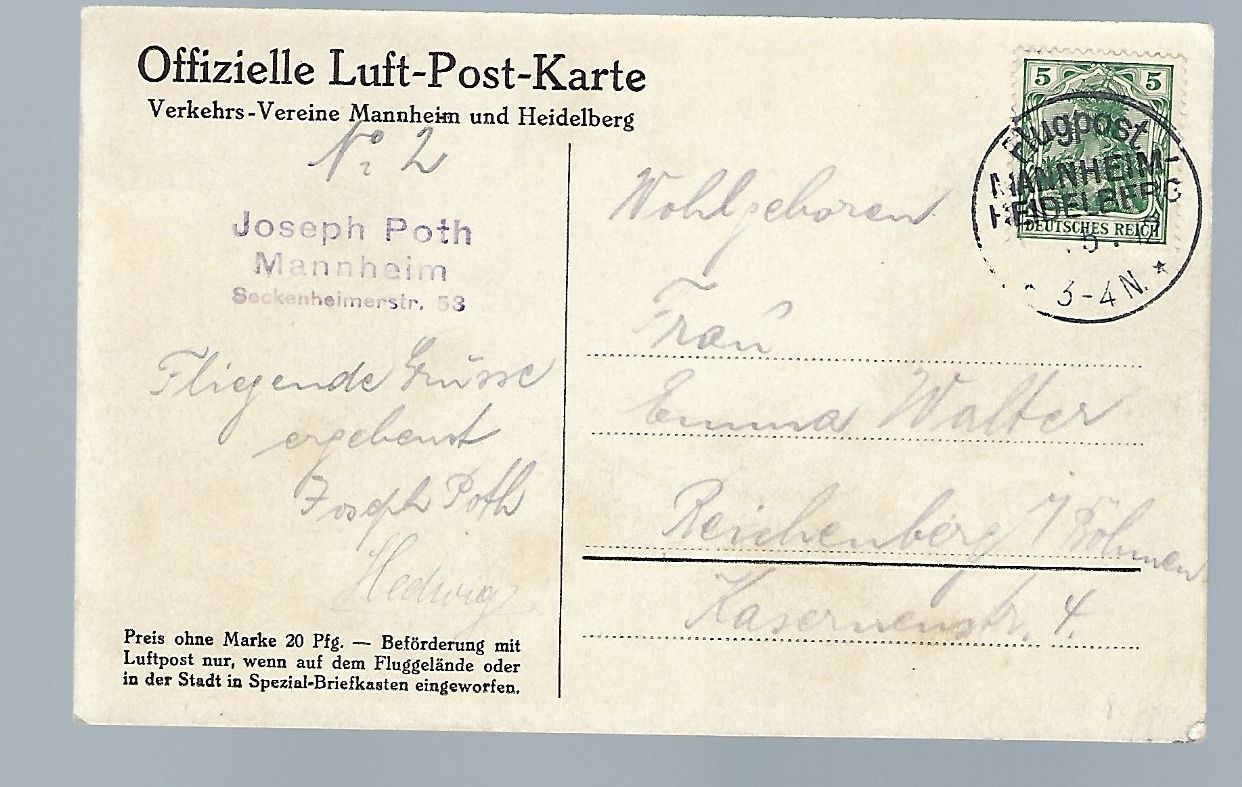 Offizielle Luft-Post-Karte
Verkehrs-Vereine Mannheim und Heidelberg
No 2
Joseph Poth
Mannheim
Seckenheimerstr. 53
Fliegende Grüsse
ergebenst
Joseph Poth
Hedwig
Preis ohne Marke 20 Pfg. — Beförderung mit
Luftpost nur, wenn auf dem Fluggelände oder
in der Stadt in Spezial-Briefkasten eingeworfen.
5 5
DEUTSCHES REICH
Flugpost
MANNHEIM-
HEIDELBERG
3-4 N. *
Wohlgeboren
Frau
Emma Walter
Reichenberg i/Böhmen
Kasernenstr. 4.